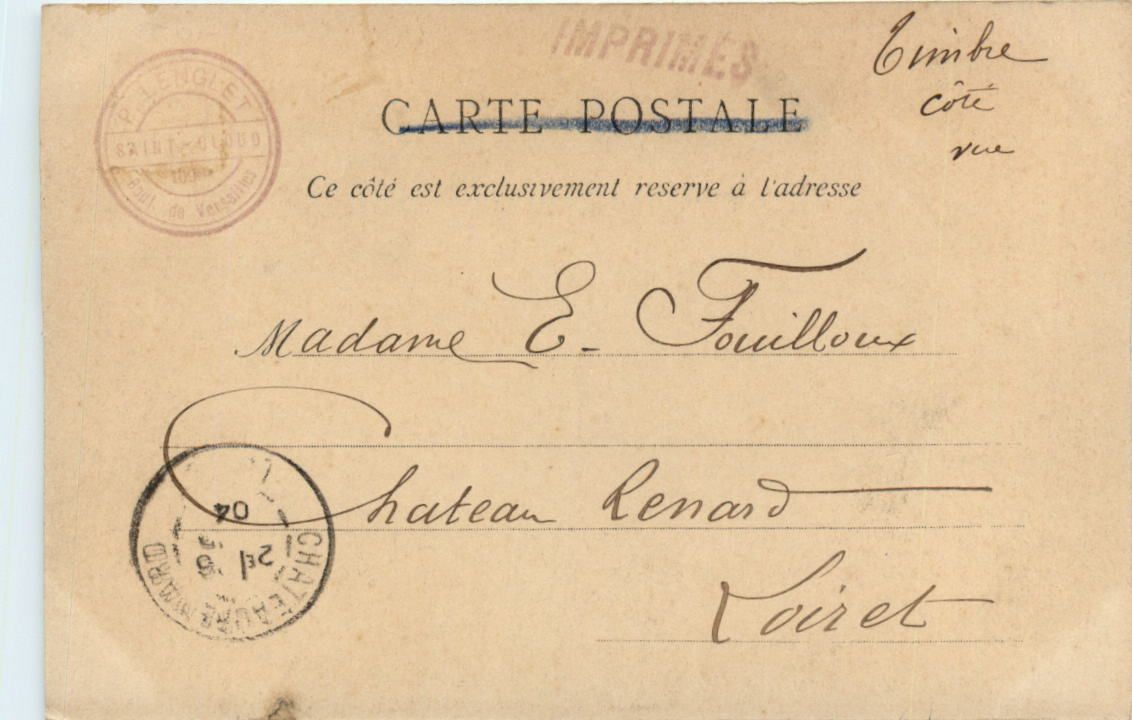 IMPRIMÉS
Timbre
côté
vue
P. LENGLET
SAINT-CLOUD
Boul. de Versailles
CARTE POSTALE
Ce côté est exclusivement reserve à l'adresse
Madame E. Fouilloux
Chateau Renard
Loiret
CHATEAURENARD
2E
04